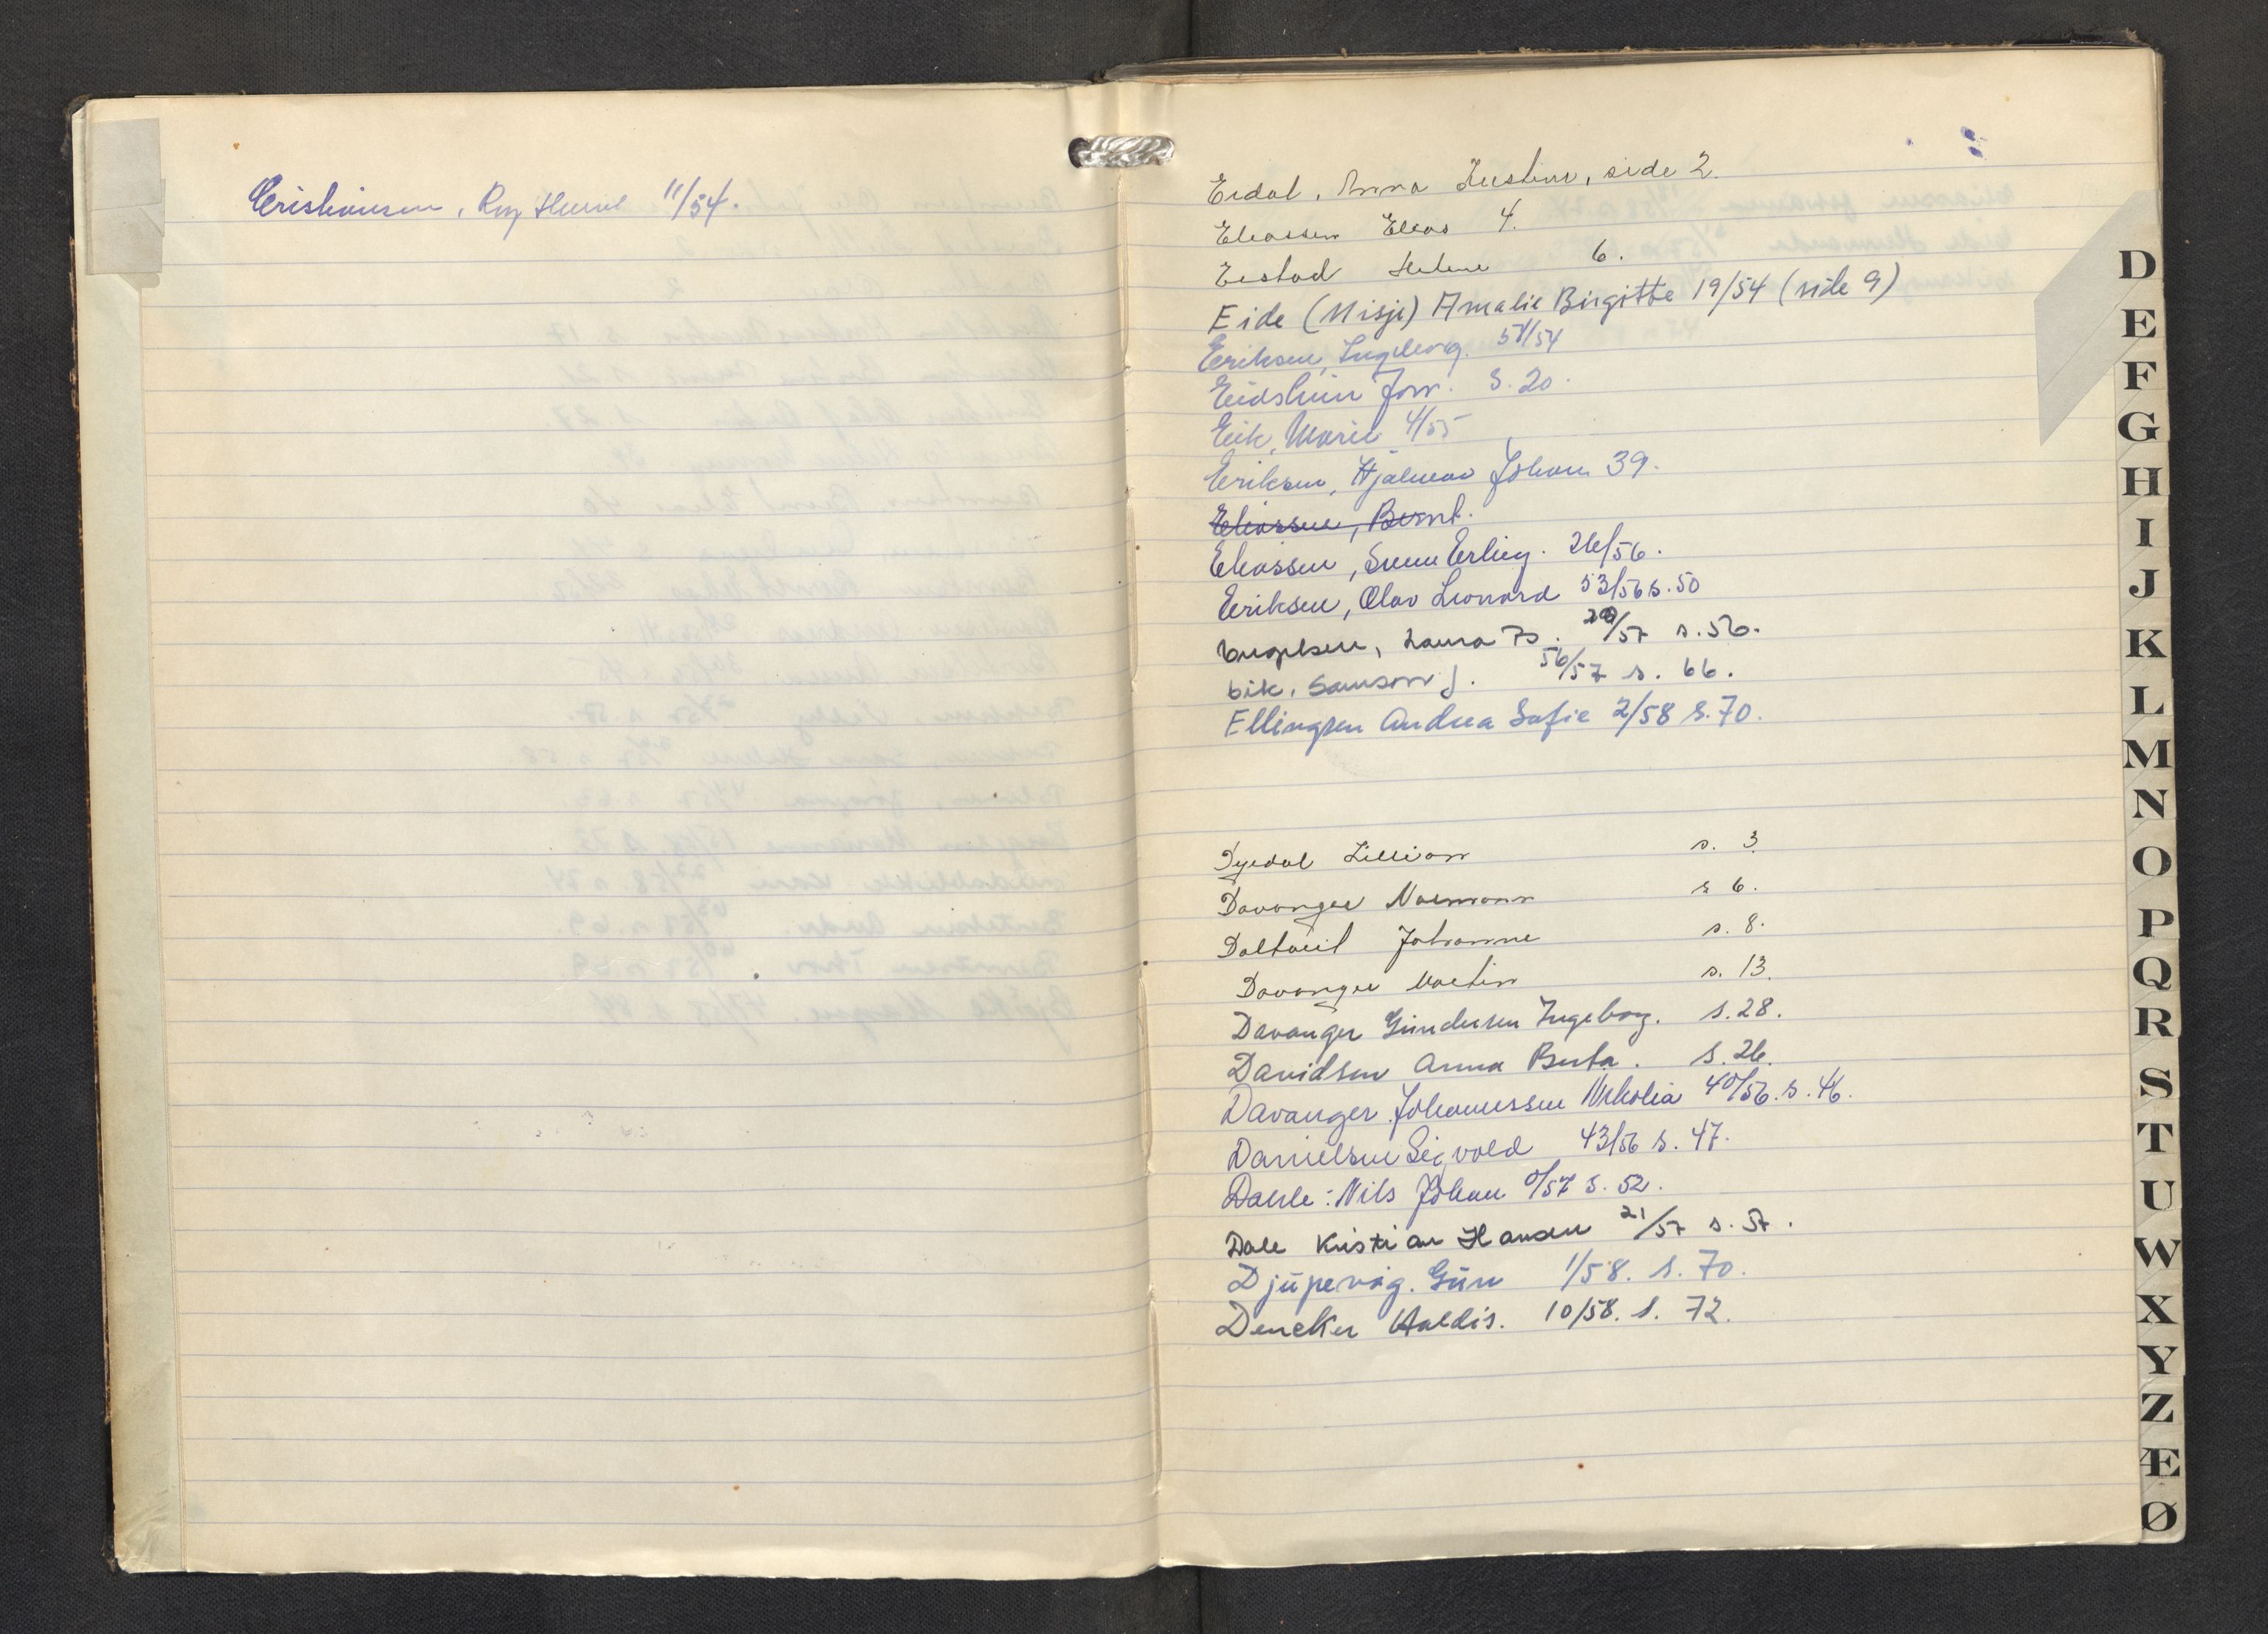 Cristiansen, Roy 11/54.
Eidal, Anna Kristine, side 2.
Eliassen Elias 4.
Eistad Helene 6.
Eide (Misje) Amalie Birgitte 19/54 (side 9)
Eriksen, Ingeborg. 54/54
Eidsheim Jon. s. 20.
Eik, Marie 4/55
Eriksen, Hjalmar Johan 39.
Eliassen, Bernt.
Eliassen, Svenn Erling. 26/56.
Eriksen, Olav Leonard 53/56 s. 50
Engelsen, Laura B. /57 s. 56.
Eik, Samson J. 56/57 s. 66.
Ellingsen Andrea Sofie 2/58 s. 70.
Lillian s. 3
Davanger Normann s 6.
Daltveit Johanne s. 8.
Davanger Martin s. 13.
Davanger Gundersen Ingeborg. s. 28.
Davidsen Anna Berta. s. 26.
Davanger Johannessen Nikolia 40/56. s. 46.
Danielsen Sigvald 43/56 s. 47.
Dahle: Nils Johan /57 s. 52.
Dale Kristian Hansen 21/57 s. 57.
Djupevåg. Gun 1/58. s. 70.
Dencker Haldis. 10/58. s. 72.
D
E
F
G
H
I
J
K
L
M
N
O
P
Q
R
S
T
U
W
X
Y
Z
Æ
Ø